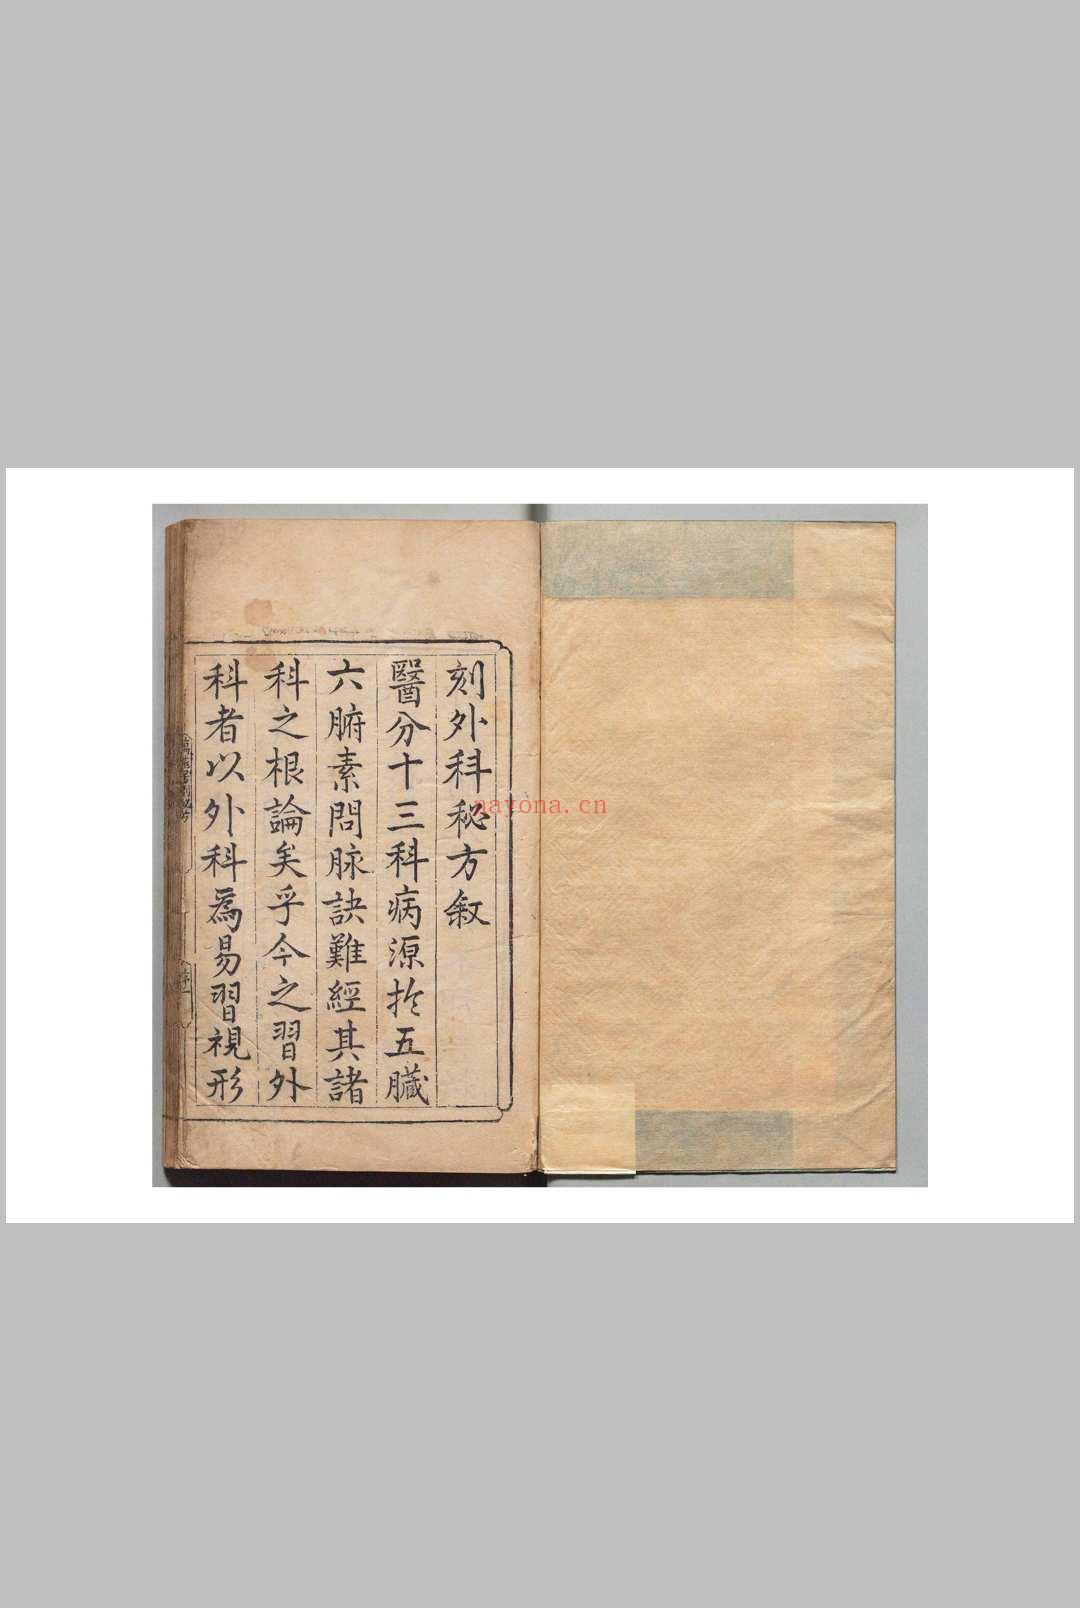 刻外科秘方叙
醫分十三科病源扵五臓
六腑素問脉訣難經其諸
科之根論矣乎今之習外
科者以外科為易習視形
nayona.cn